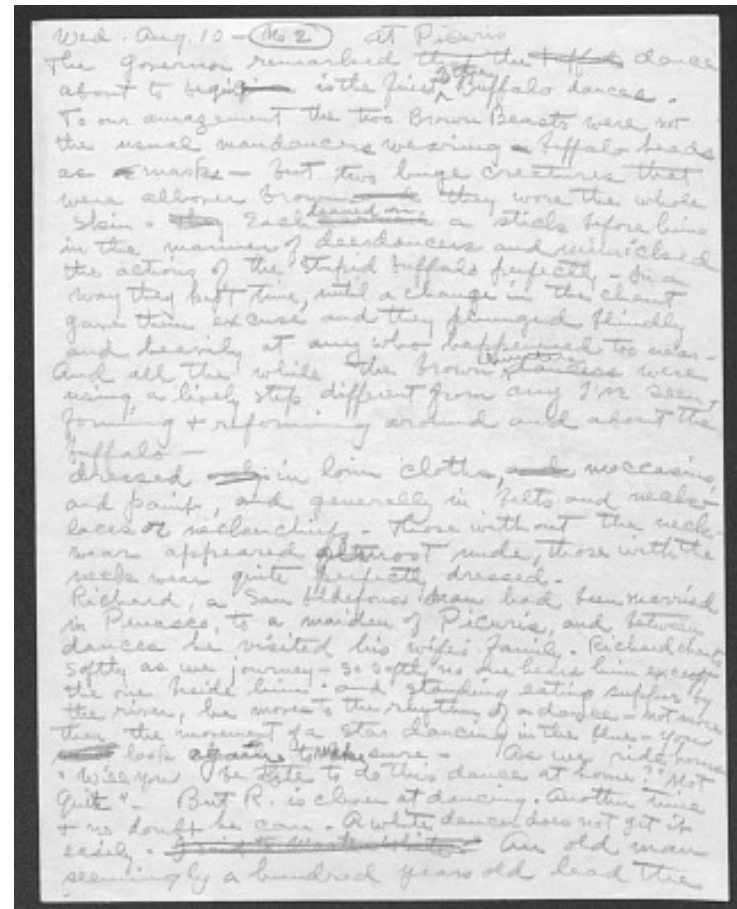 Wed. Aug. 10 - No 2 at Picuris
The governor remarked that the Buffalo dance
about to begin is the first of the Buffalo dances.
To our amazement the two Brown Beasts were not
the usual mandancers wearing a buffalo heads
as masks - but two huge creatures that
were allover brown and they wore the whole
skin. They Each leaned on a stick before him
in the manner of deerdancers and mimicked
the actions of the stupid buffalo perfectly - In a
way they kept time, until a change in the chant
gave them excuse and they plunged blindly
and heavily at any who happened too near -
And all the while the brown dancers were
using a lively step different from any I've seen,
forming + reforming around and about the
buffalo -
dressed in loin cloths, and moccasins,
and paint, and generally in belts and neck-
laces or neckerchiefs. Those without the neck-
wear appeared almost nude, those with the
neck wear quite perfectly dressed.
Richard, a San Ildefonso man had been married
in Penasco, to a maiden of Picuris, and between
dances he visited his wife's family. Richard chants
softly as we journey - so softly no one hears him except
the one beside him - and standing eating supper by
the river, he moves to the rhythm of a dance - not more
than the movement of a star dancing in the blue - you
look again to make sure - As we ride home
"Will you be able to do this dance at home?" "Not
quite" - But R. is clever at dancing. Another time
+ no doubt he can. A white dancer does not get it
easily. An old man
seemingly a hundred years old lead the